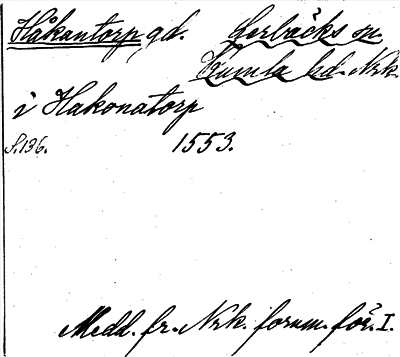 Håkantorp gd. Lerbäcks sn.
Kumla hd. Nrk.
i Hakonatorp
S. 136. 1553.
Medd. fr. Nrk. fornm. för. I.